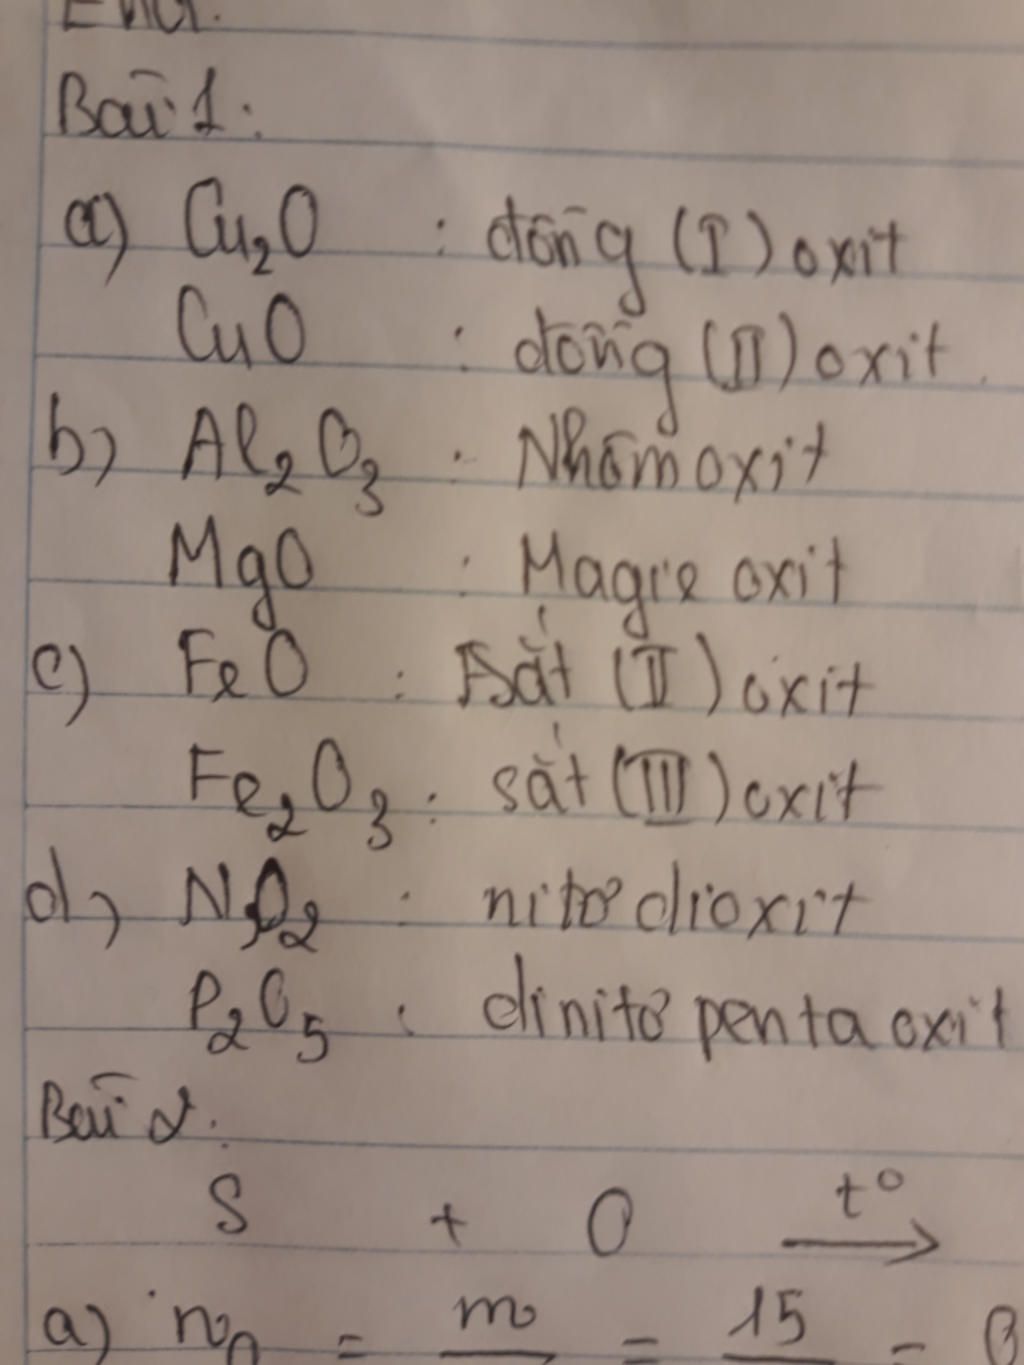 Bài 1:
a) Cu₂O : đồng (I) oxit
CuO : đồng (II) oxit.
b) Al₂O₃ : Nhôm oxit
MgO : Magie oxit
c) FeO : sắt (II) oxit
Fe₂O₃ : sắt (III) oxit
d) NO₂ : nitơ đioxit
P₂O₅ : đinitơ penta oxit
Bài 2:
S + O t° →
a) n = m = 15 =